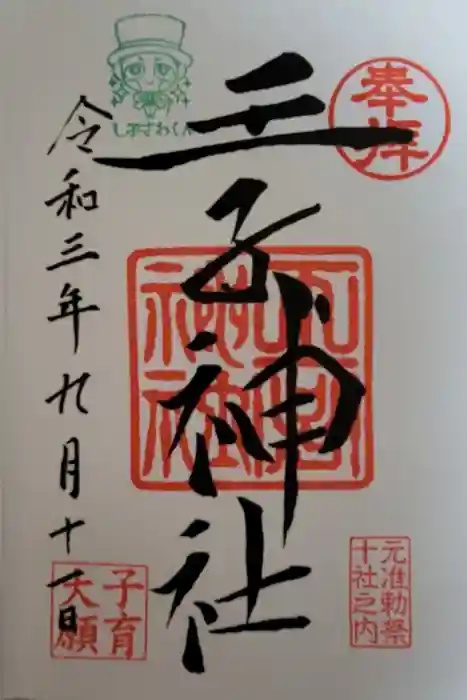 奉拝
王子神社
元准勅祭
十社之内
しぶさわくん
令和三年九月十一日
子育
大願